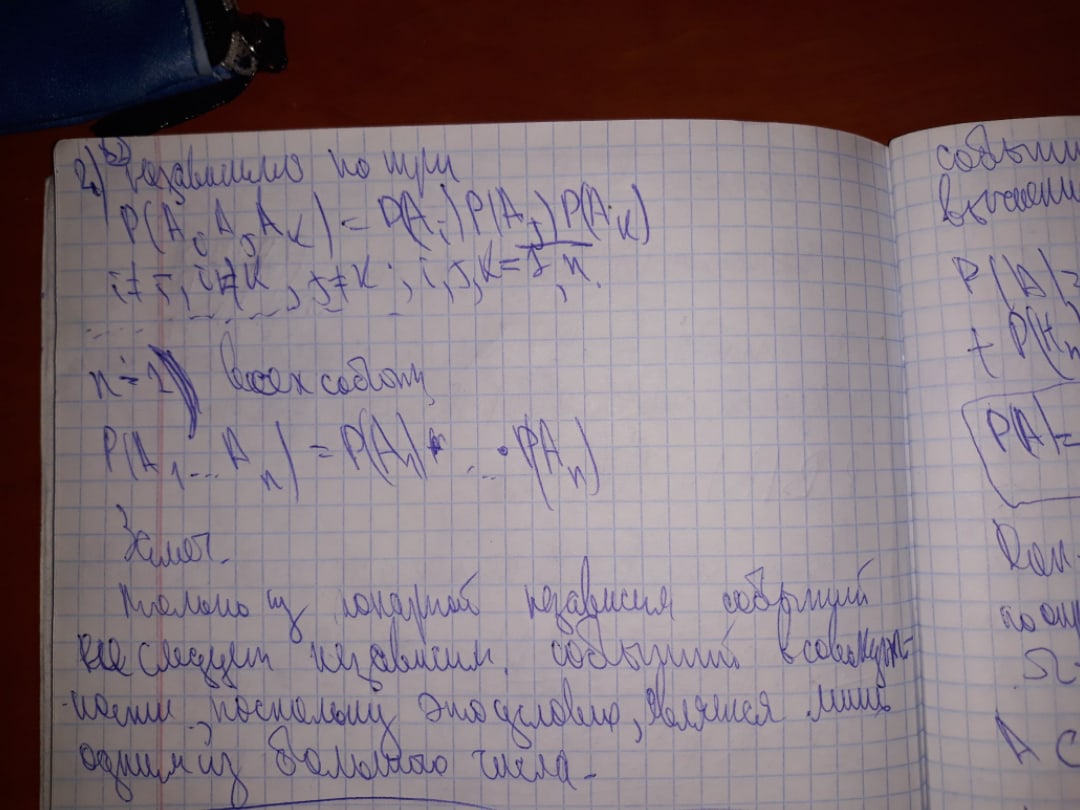 2) Независимо по три
P(AᵢAⱼAₖ) = P(Aᵢ)P(Aⱼ)P(Aₖ)
i≠j, i≠k, j≠k; i,j,k=1,n
n-1) всех событ
P(A₁...Aₙ) = P(A₁)· ... ·P(Aₙ)
Замеч.
только из попарной независим событий
не следует независим. событий в совокуп-
ности, поскольку это условие, является лишь
одним из большого числа.
событи
P(A)=
+ P(Hₙ)
P(A)=
Док-
по опр
Ω
A C